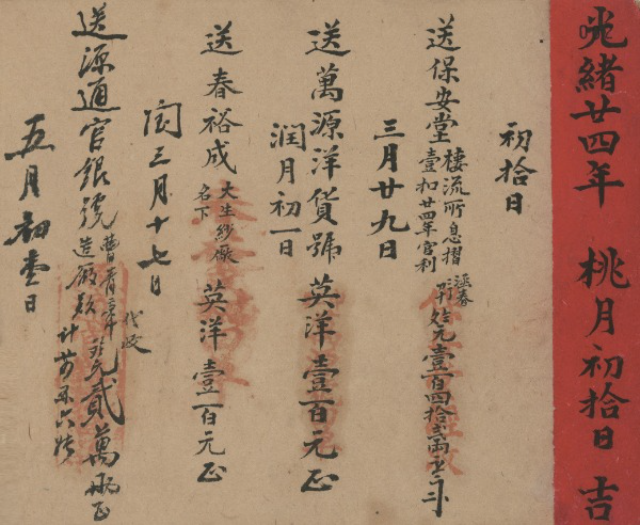 光緒廿四年 桃月初拾日 吉
初拾日
送保安堂
棲流所息摺
壹扣廿四年官利
元壹百四拾
三月廿九日
送萬源洋貨號 英洋壹百元正
潤月初一日
送春裕成
大生紗廠
名下
英洋壹百元正
閏三月十七日
送源通官銀號
造廠款
代收
貳萬
正
五月初壹日